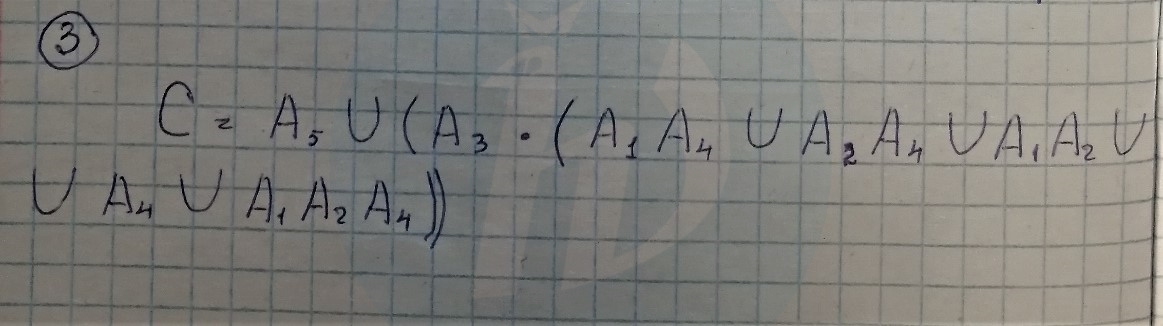 3
C = A₅ U (A₃ · (A₁A₄ U A₂A₄ U A₁A₂ U
U A₄ U A₁A₂A₄))